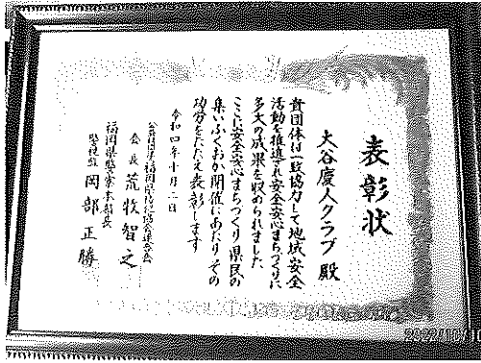 表彰状
大谷慶人クラブ 殿
貴団体は一致協力して地域安全
活動を推進され安全安心まちづくりに
多大の成果を収められました
ここに安全安心まちづくり県民の
集いふくおか開催にあたりその
功労をたたえ表彰します
令和四年十月二日
公益社団法人福岡県防犯協会連合会
会長 荒牧智之
福岡県警察本部長
警視監 岡部正勝
2022/10/10